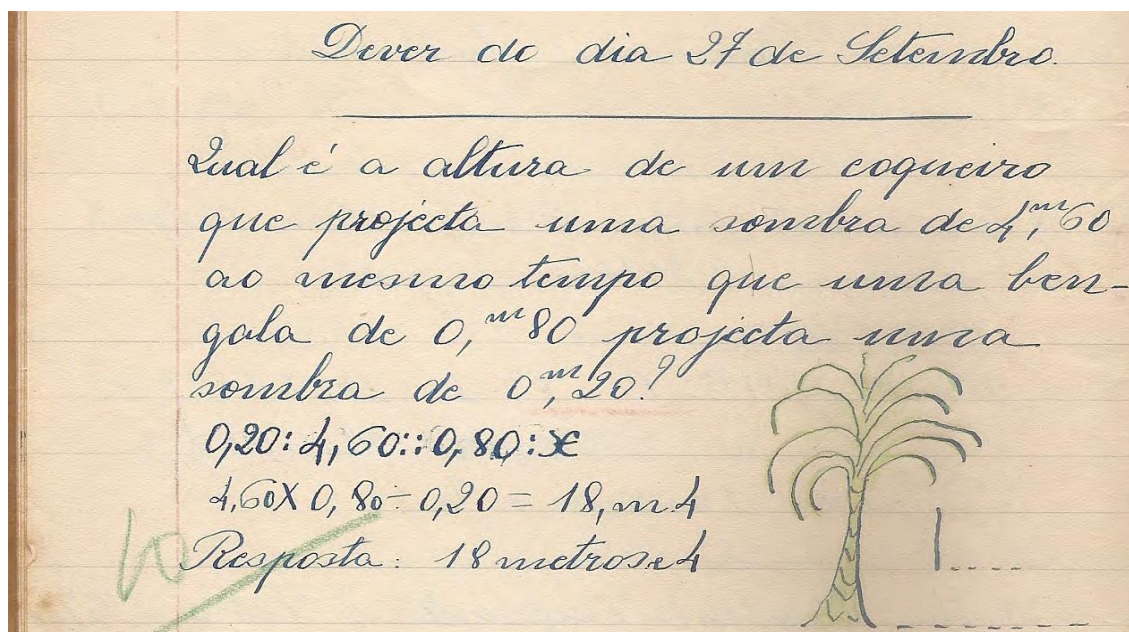 Dever do dia 27 de Setembro.
Qual é a altura de um coqueiro
que projecta uma sombra de 4,ᵐ60
ao mesmo tempo que uma ben-
gala de 0,ᵐ80 projecta uma
sombra de 0,ᵐ20?
0,20:4,60::0,80:x
4,60X0,80÷0,20=18,m4
Resposta: 18 metros e 4
10